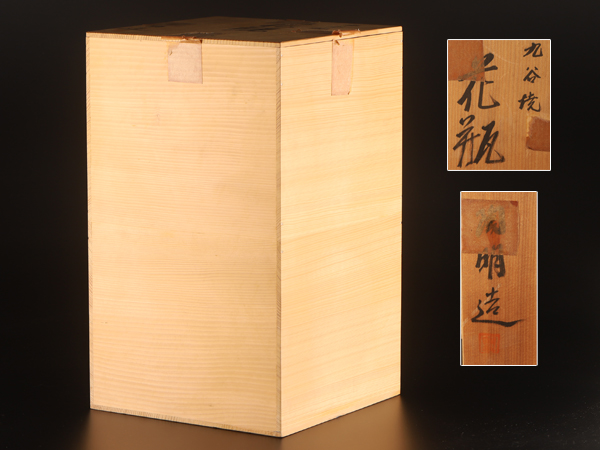 九谷焼
花瓶
明造